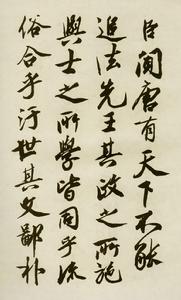 臣聞唐有天下不能
追法先王其政之所施
與士之所學皆同乎流
俗合乎汙世其文鄙朴